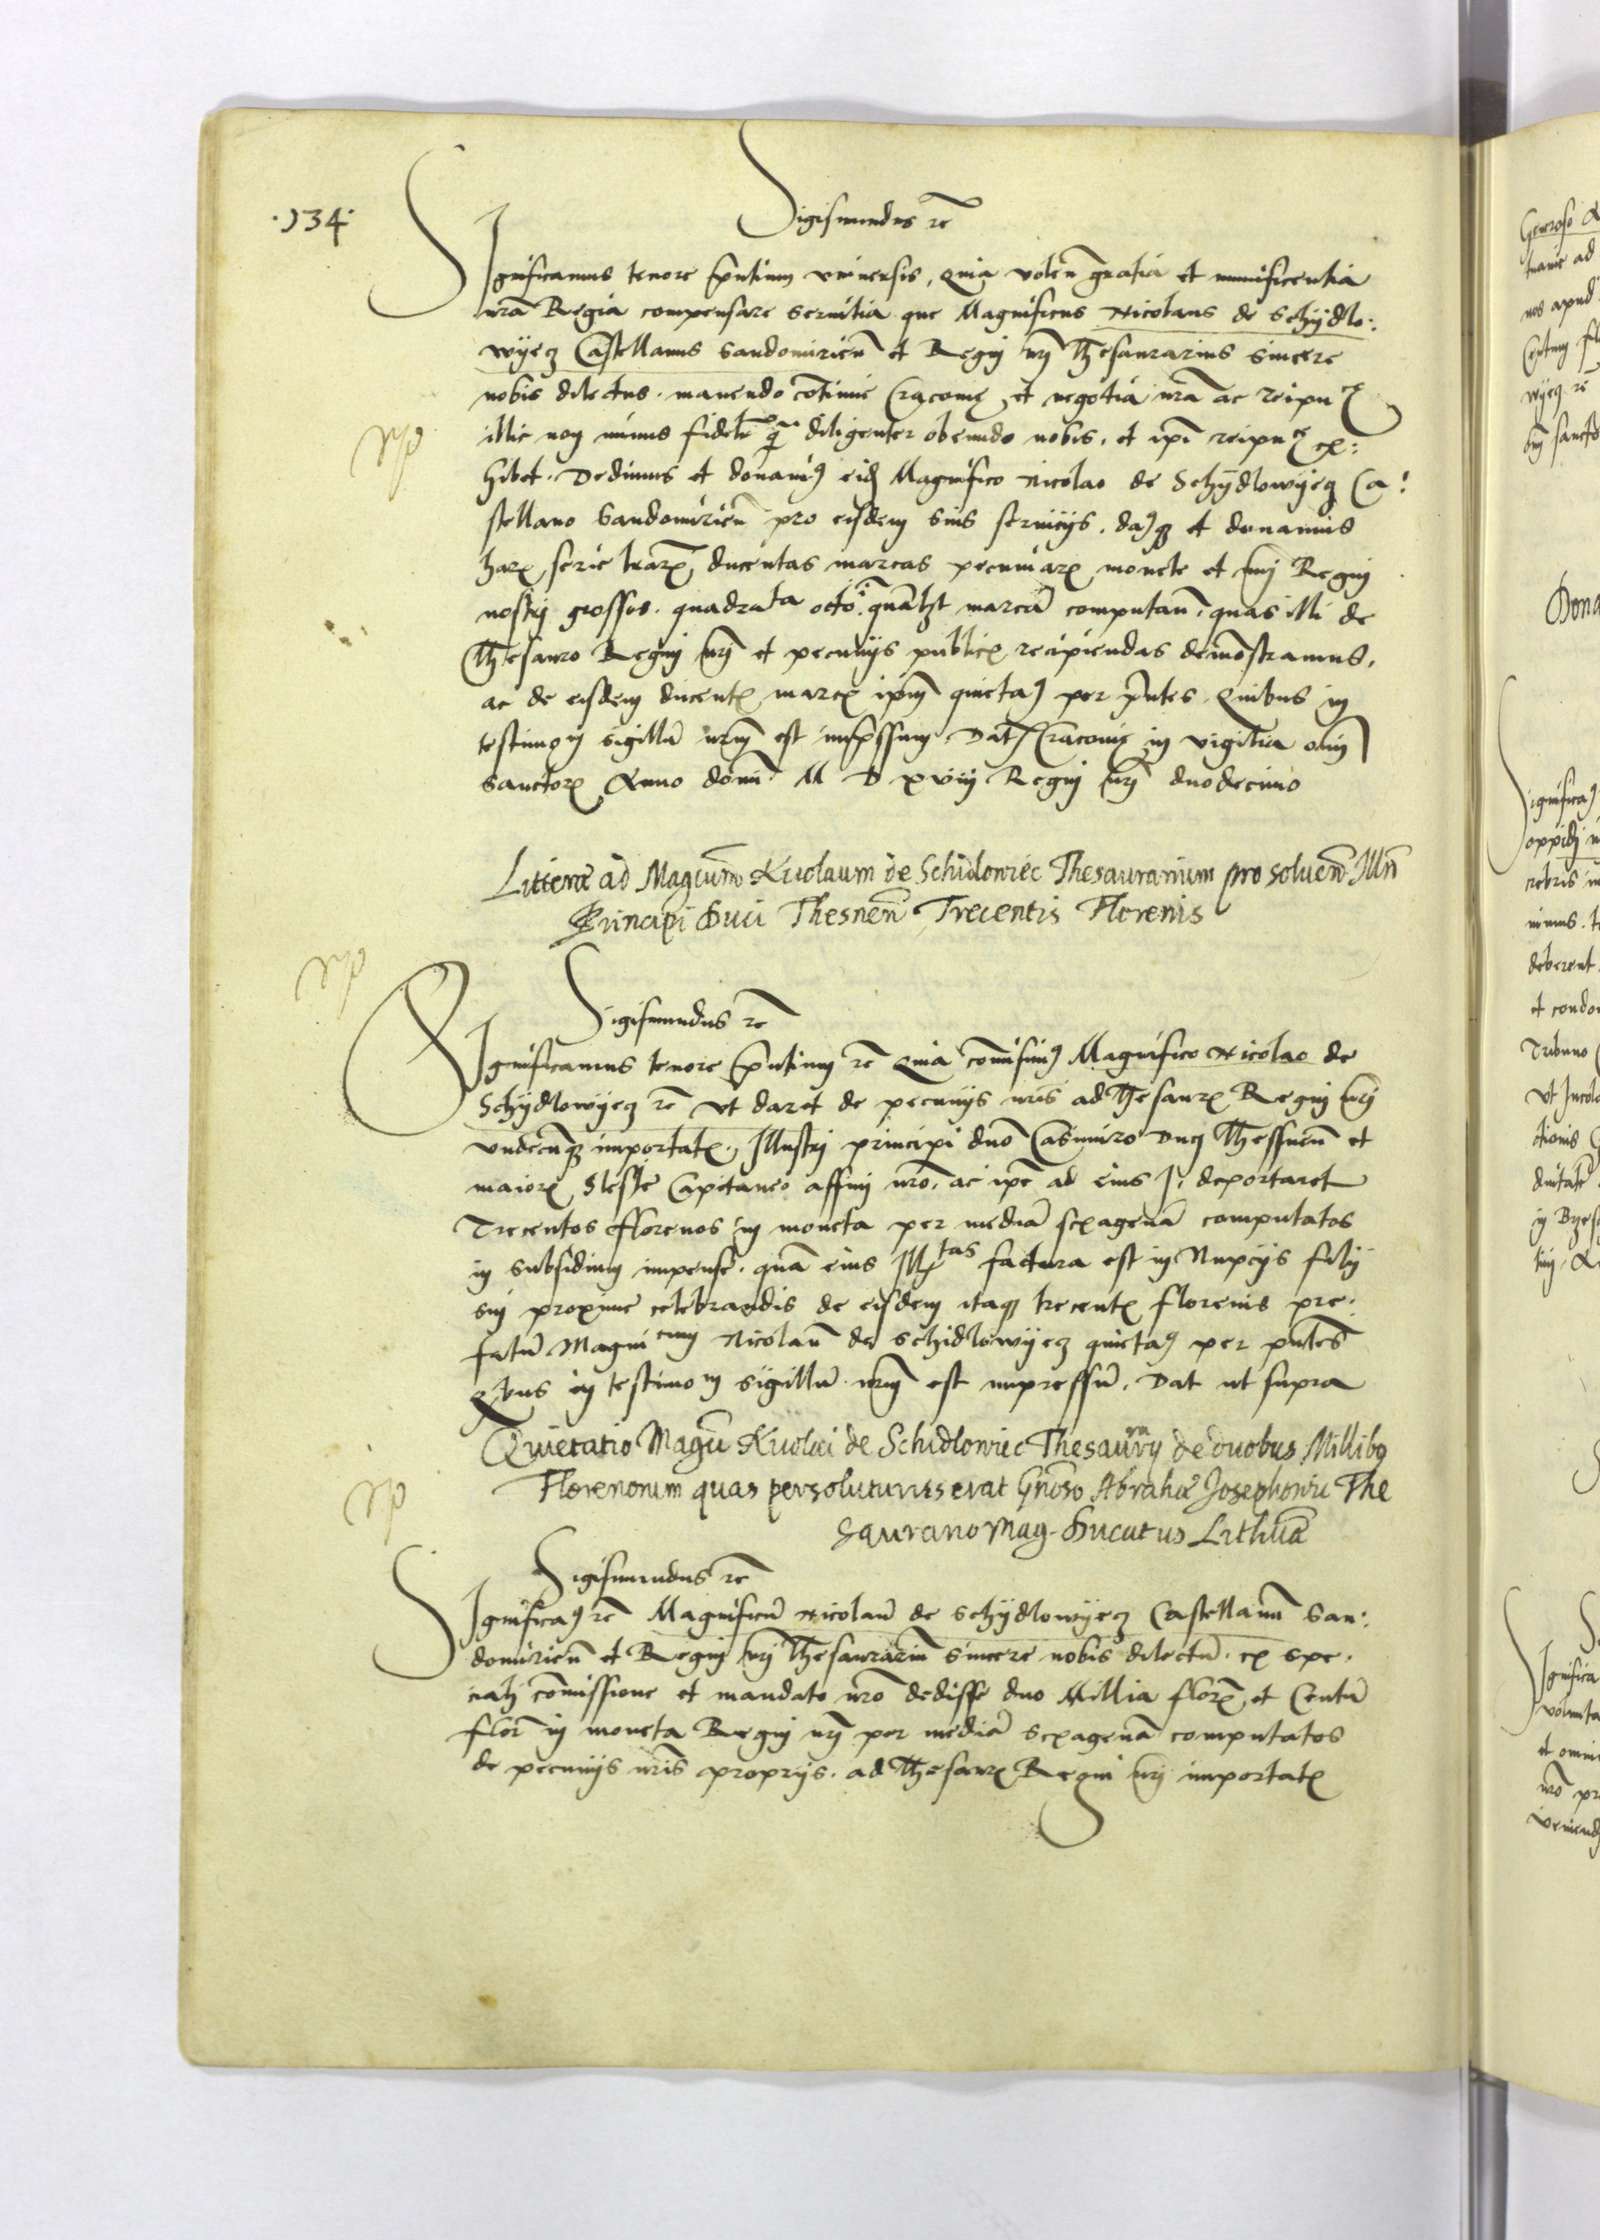 ·134·
Sigismundus rē
Significamus tenore p̄ntium vniuersis, Quia volen̄ gratia et munificentia
nr̄a Regia compensare seruitia que Magnificus Nicolaus de Schydlo:
wyecz Castellanus Sandomirien̄ et Regnj nrj Thesaurarius sincere
nobis dilectus. manendo cōtinue Cracovie, et negotia nr̄a ac reipu
illic non minus fidelr̄ q̄ diligenter obeundo nobis, et ip̄i reipu ex:
hibet. Dedimus et donauim9 eid Magnifico Nicolao de Schydlowyecz Ca:
stellano Sandomirien̄ pro eisdem suis seruicijs. dam9q3 et donamus
harx serie lrarx, ducentas marcas pecuniarx monete et nrj Regnj
nostrj grossos. quadraginta octo. quāl3t marcā computan̄, quas illi de
Thesauro Regnj nrj et pecunijs publicx recipiendas demōstramus,
ac de eisdem ducentx marcx ipm̄ quietam9 per p̄ntes. Quibus in
testimom sigillū nrm̄ est imp̄ssum. Dat Cracovie in vigilia oīm
Sanctorx Anno domī M D xviij Regnj nrj duodecimo
Litterae ad Magcum Nicolaum de Schidlowiec Thesaurarium pro soluen Illri
Principi Duci Thesnen Trecentis Florenis
Sigismundus rē
Significamus tenore p̄ntium rē Quia com̄isim9 Magnifico Nicolao de
Schydlowyecz rē vt daret de pecunijs nrīs ad Thesaurx Regnj nrj
vndecūq3 importatx. Illustrj principi dnō Casimiro Ducj Thessnen̄ et
maiorx Slesie Capitaneo affinj nrō. ac ipē ad eius I. deportaret
Trecentos florenos in moneta per mediā sexagenā computatos
in subsidium impense. quā eius Illtas factura est in Nupcijs filij
sui proxime celebrandis de eisdem itaq3 trecentx florenis pre:
fatū Magnicum Nicolaū de Schidlowyecz quietam9 per p̄ntes
Qbus in testimom sigillū nrm̄ est impressū. Dat ut supra
Quietatio Magci Nicolai de Schidlowiec Thesaurarij de duobus Millibq
Florenorum quas persoluturus erat Gnōso Abrahae Josephowic The
saurario Mag. Ducatus Lithua
Sigismundus rē
Significam9 rē Magnificū Nicolaū de Schydlowyecz Castellanū San:
domirien̄ et Regnj nrj Thesaurariū sincere nobis dilectū. ex spe:
cialj com̄issione et mandato nr̄o dedisse duo Millia florx et Centū
flor̄ in moneta Regnj nrj per mediā sexagenā computatos
de pecunijs nrīs proprijs. ad Thesaurx Regnj nrj importatx